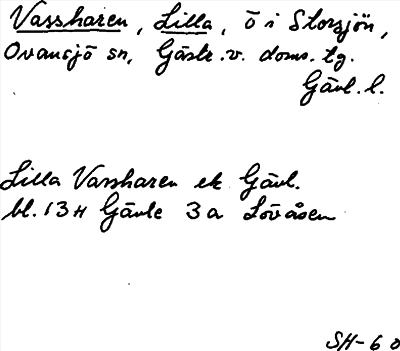 Vassharen, Lilla, ö i Storsjön,
Ovansjö sn, Gästr. v. doms. tg.
Gävl. l.
Lilla Vassharen ek Gävl.
bl. 13 H Gävle 3 a Lövåsen
SH-60